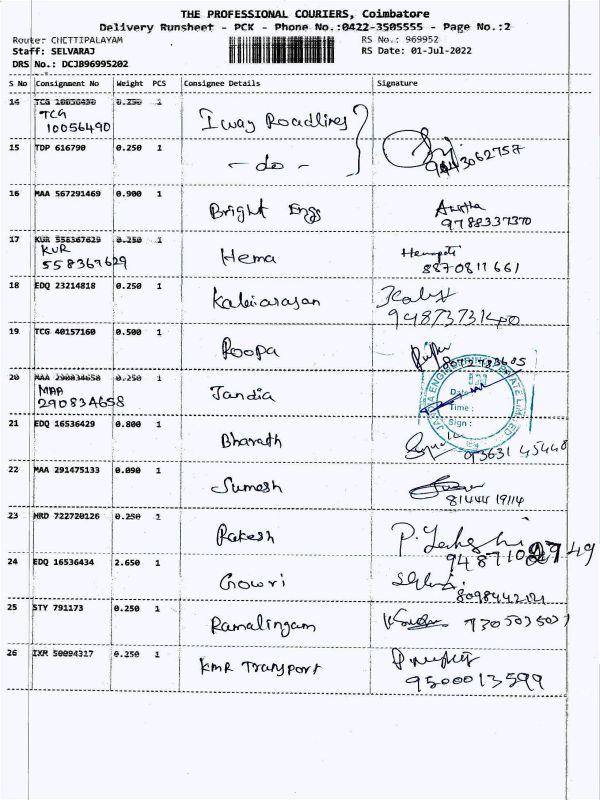 THE PROFESSIONAL COURIERS, Coimbatore
Delivery Runsheet - PCK - Phone No.:0422-3505555 - Page No.:2
Route: CHETTIPALAYAM RS No.: 969952
Staff: SELVARAJ RS Date: 01-Jul-2022
DRS No.: DCJB96995202
S No Consignment No Weight PCS Consignee Details Signature
14 TCG 10056490 0.250 1 Iway Roadlines
TCG
10056490
15 TDP 616790 0.250 1 - do - 9443062757
16 MAA 567291469 0.900 1 Bright Engs
9788337370
17 KUR 558367629 0.250 1 Hema
KUR
558367629 8870811661
18 EDQ 23214818 0.250 1 Kalaiarasan
19 TCG 40157160 0.500 1 Roopa
20 MAA 290834658 0.250 1 Jandia
MAA
290834658
Date
Time :
Sign :
21 EDQ 16536429 0.800 1 Bharath
9363145448
22 MAA 291475133 0.090 1 Sumesh
8144419114
23 MRD 722720126 0.250 1 Rakesh
24 EDQ 16536434 2.650 1 Gowri
25 STY 791173 0.250 1 Ramalingam 7305035031
26 IXR 50094317 0.250 1 KMR Transport
9500013599